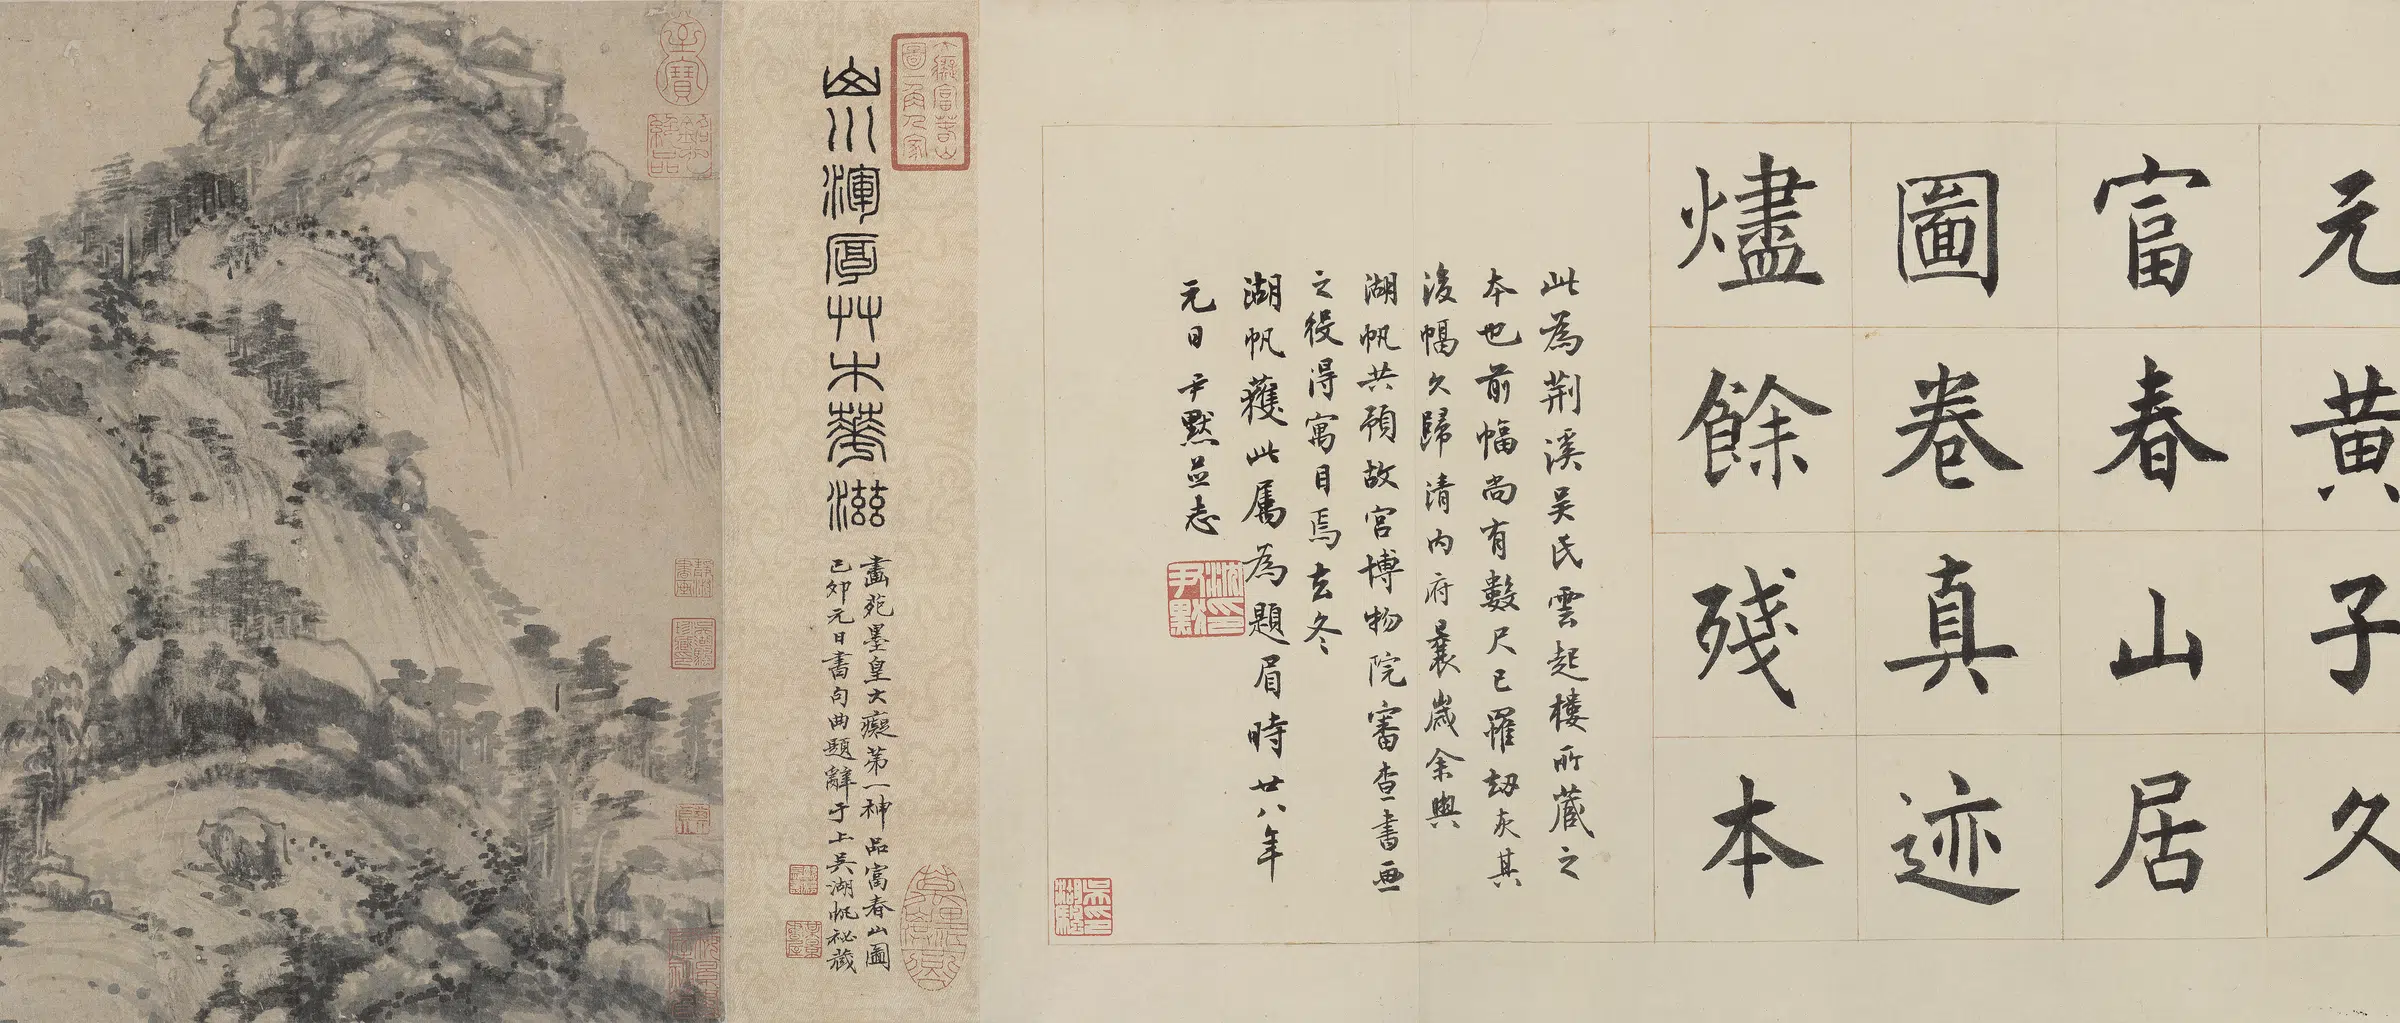 元黄子久
富春山居
圖卷真迹
燼餘殘本
此為荆溪吴氏雲起樓所藏之
本也前幅尚有數尺已罹劫灰其
後幅久歸清内府曩歲余與
湖帆共預故宫博物院審查書画
之役得寓目焉去冬
湖帆獲此属為題眉時廿八年
元日尹默並志
沈尹默印
大癡富春山圖一角人家
山川渾厚艸木華滋
畫苑墨皇大癡第一神品富春山圖
己卯元日書句曲題辭于上吳湖帆祕藏
至寶